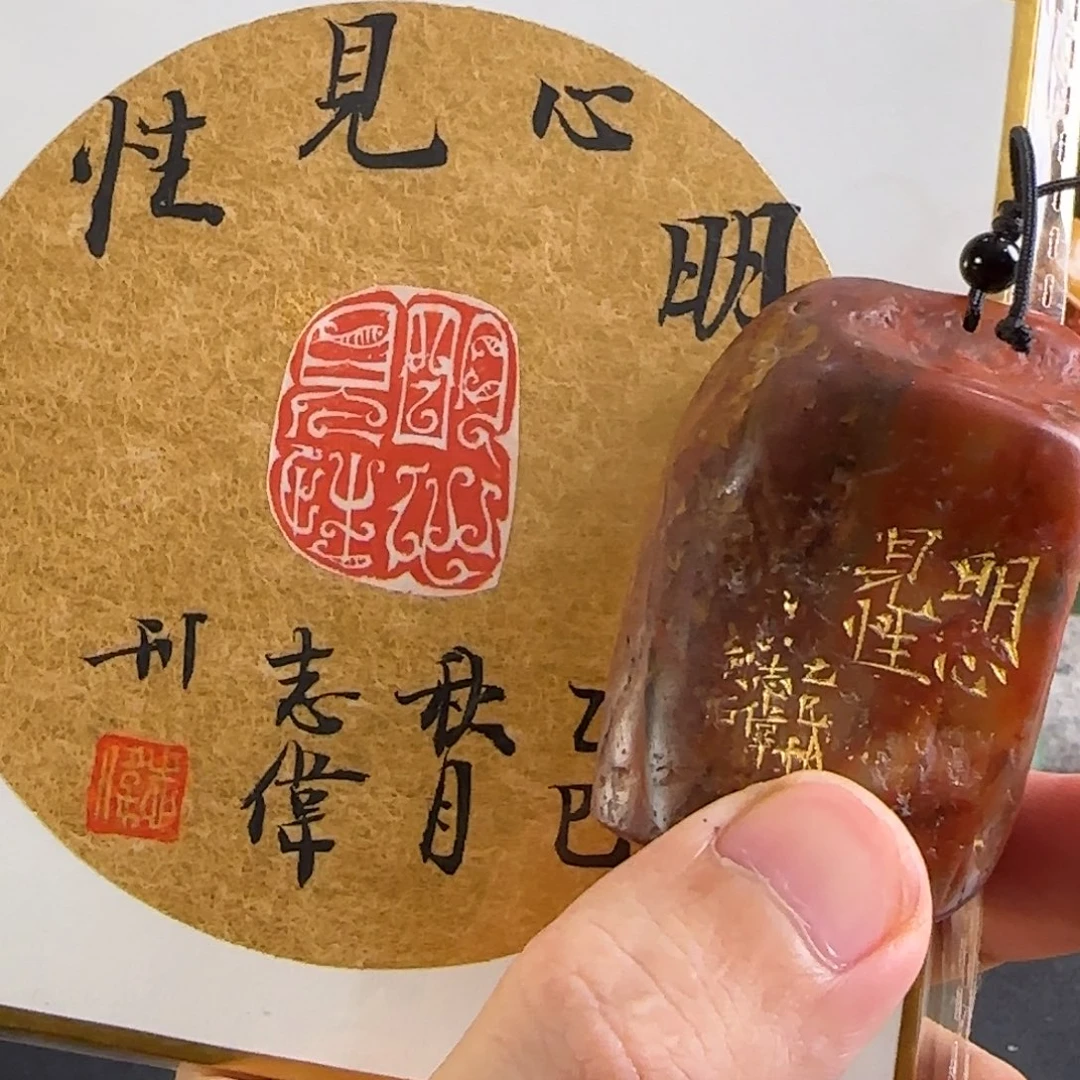 明心見性
明心見性
乙巳
秋月
志偉
刊
志偉
明心
見性
乙巳秋
志偉